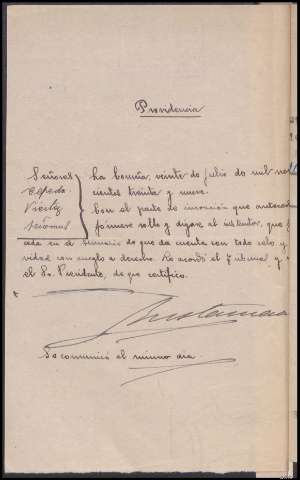 Providencia
Señores
Cepeda
Vicéiz
Señoral
La Coruña, veinte de julio de mil nove
cientos treinta y nueve.
Con el parte de incoación que antecede
fórmese rollo y dígase al instructor, que p
ceda en el sumario de que da cuenta con todo celo y
vidad con arreglo a derecho. Lo acordó el Tribunal y
el Sr. Presidente, de que certifico.
Se comunicó el mismo día.